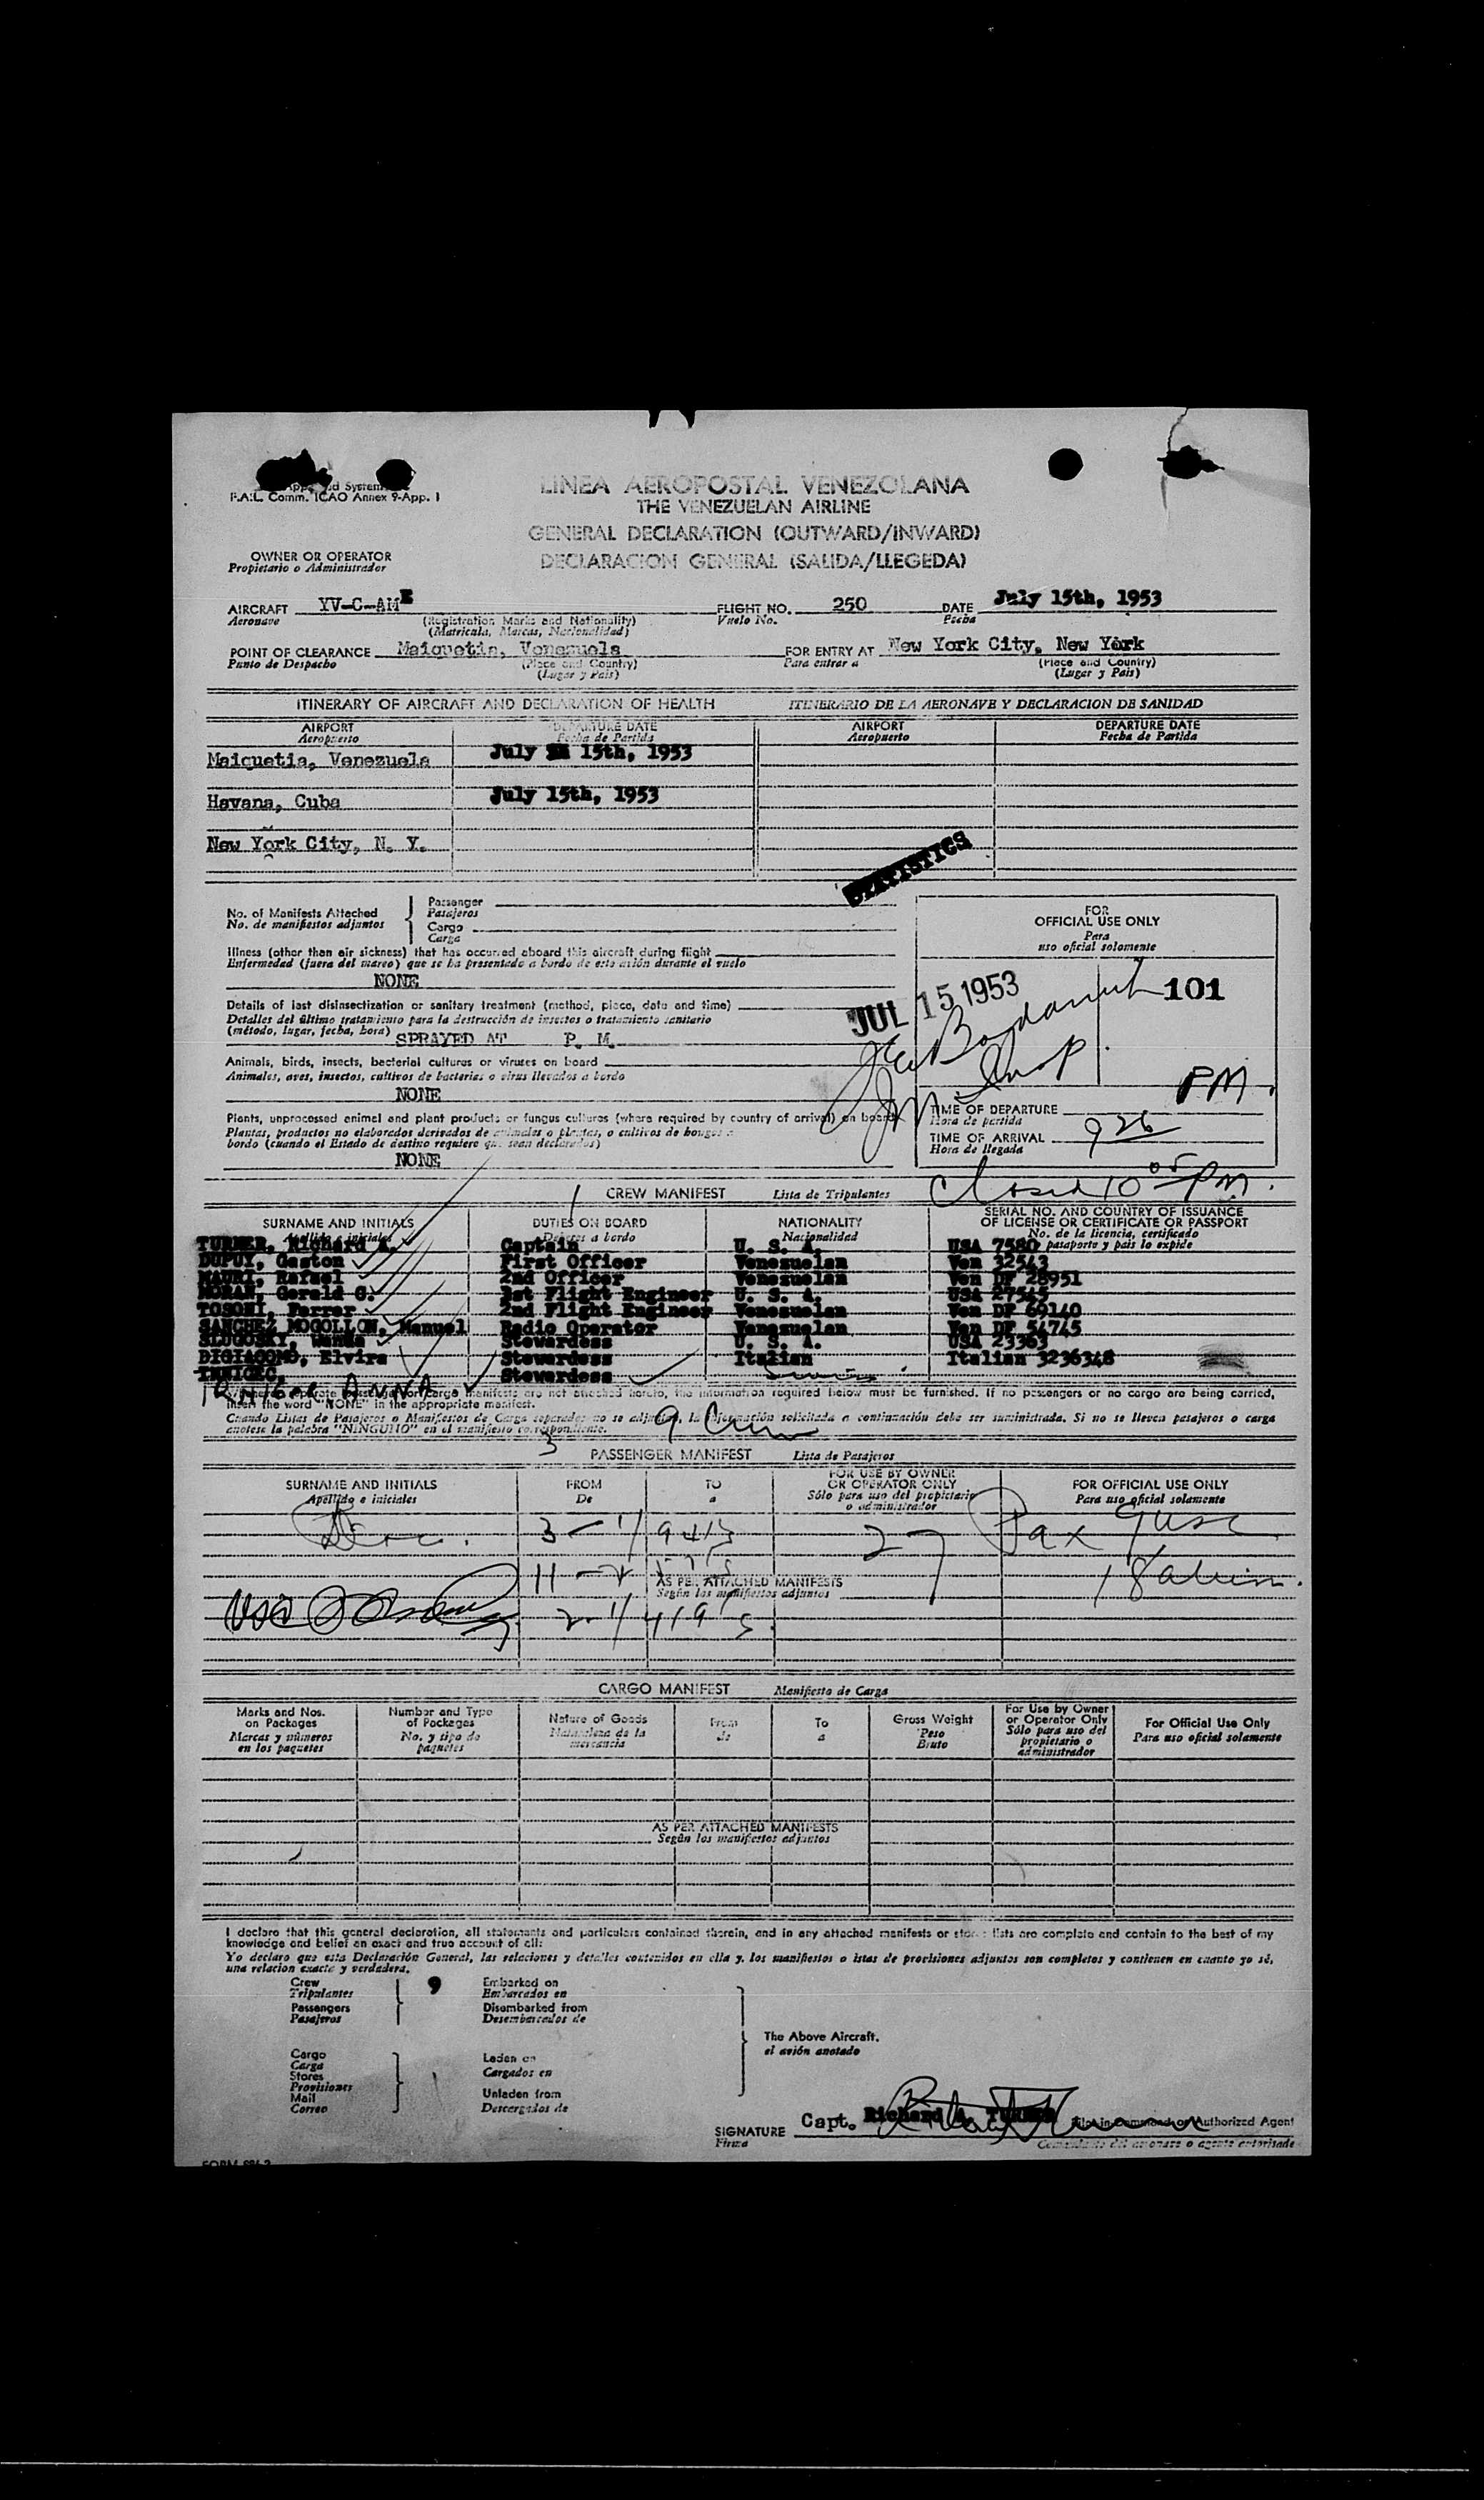 F.A.L. Comm. ICAO Annex 9-App. I
LINEA AEROPOSTAL VENEZOLANA
THE VENEZUELAN AIRLINE
GENERAL DECLARATION (OUTWARD/INWARD)
DECLARACION GENERAL (SALIDA/LLEGEDA)
OWNER OR OPERATOR
Propietario o Administrador
AIRCRAFT YV-C-AME FLIGHT NO. 250 DATE July 15th, 1953
Aeronave (Registration Marks and Nationality) Vuelo No. Fecha
(Matricula, Marcas, Nacionalidad)
POINT OF CLEARANCE Maiquetia, Venezuela FOR ENTRY AT New York City, New York
Punto de Despacho (Place and Country) Para entrar a (Place and Country)
(Lugar y Pais) (Lugar y Pais)
ITINERARY OF AIRCRAFT AND DECLARATION OF HEALTH ITINERARIO DE LA AERONAVE Y DECLARACION DE SANIDAD
AIRPORT DEPARTURE DATE AIRPORT DEPARTURE DATE
Aeropuerto Fecha de Partida Aeropuerto Fecha de Partida
Maiquetia, Venezuela July 15th, 1953
Havana, Cuba July 15th, 1953
New York City, N. Y.
STATISTICS
No. of Manifests Attached Passenger
No. de manifiestos adjuntos Pasajeros
Cargo
Carga
FOR
OFFICIAL USE ONLY
Para
uso oficial solamente
Illness (other than air sickness) that has occurred aboard this aircraft during flight
Enfermedad (fuera del mareo) que se ha presentado a bordo de este avión durante el vuelo
NONE
JUL 15 1953 101
Details of last disinsectization or sanitary treatment (method, place, date and time)
Detalles del último tratamiento para la destrucción de insectos o tratamiento sanitario
(método, lugar, fecha, hora) SPRAYED AT P. M.
Animals, birds, insects, bacterial cultures or viruses on board
Animales, aves, insectos, cultivos de bacterias o virus llevados a bordo
NONE
PM.
Plants, unprocessed animal and plant products or fungus cultures (where required by country of arrival) on board
Plantas, productos no elaborados derivados de animales o plantas, o cultivos de hongos a
bordo (cuando el Estado de destino requiere que sean declarados)
NONE
TIME OF DEPARTURE
Hora de partida
TIME OF ARRIVAL 926
Hora de llegada
Closed 10 05 PM.
CREW MANIFEST Lista de Tripulantes
SURNAME AND INITIALS DUTIES ON BOARD NATIONALITY SERIAL NO. AND COUNTRY OF ISSUANCE
OF LICENSE OR CERTIFICATE OR PASSPORT
Apellido e iniciales Deberes a bordo Nacionalidad No. de la licencia, certificado
pasaporte y pais lo expide
TURNER, Richard A. Captain U. S. A. USA 7580
DUPUY, Gaston First Officer Venezuelan Ven 32543
MAURI, Rafael 2nd Officer Venezuelan Ven DF 28951
MORAN, Gerald G. 1st Flight Engineer U. S. A. USA 27545
TOSONI, Ferrer 2nd Flight Engineer Venezuelan Ven DF 69140
SANCHEZ MOGOLLON, Manuel Radio Operator Venezuelan Ven DF 54745
SLUGOSKY, Wanda Stewardess U. S. A. USA 23363
DIGIACOMO, Elvira Stewardess Italian Italian 3236348
IRNIGEC, Stewardess Swiss
IRNIGEC ANNA
cargo manifests are not attached hereto, the information required below must be furnished. If no passengers or no cargo are being carried,
insert the word "NONE" in the appropriate manifest.
Cuando Listas de Pasajeros o Manifiestos de Carga separados no se adjuntan, la información solicitada a continuación debe ser suministrada. Si no se lleven pasajeros o carga
anotese la palabra "NINGUNO" en el manifiesto correspondiente.
9 Crew
3
PASSENGER MANIFEST Lista de Pasajeros
SURNAME AND INITIALS FROM TO FOR USE BY OWNER
OR OPERATOR ONLY FOR OFFICIAL USE ONLY
Apellido e iniciales De a Sólo para uso del propietario
o administrador Para uso oficial solamente
27 Pax 9 usc
18 aliens.
AS PER ATTACHED MANIFESTS
Según los manifiestos adjuntos
CARGO MANIFEST Manifiesto de Carga
Marks and Nos.
on Packages
Marcas y números
en los paquetes
Number and Type
of Packages
No. y tipo de
paquetes
Nature of Goods
Naturaleza de la
mercancia
From
de
To
a
Gross Weight
Peso
Bruto
For Use by Owner
or Operator Only
Sólo para uso del
propietario o
administrador
For Official Use Only
Para uso oficial solamente
AS PER ATTACHED MANIFESTS
Según los manifiestos adjuntos
I declare that this general declaration, all statements and particulars contained therein, and in any attached manifests or stores lists are complete and contain to the best of my
knowledge and belief an exact and true account of all:
Yo declaro que esta Declaración General, las relaciones y detalles contenidos en ella y, los manifiestos o istas de provisiones adjuntos son completos y contienen en cuanto yo sé,
una relacion exacta y verdadera.
Crew 9 Embarked on
Tripulantes Embarcados en
Passengers Disembarked from
Pasajeros Desembarcados de
The Above Aircraft.
el avión anotado
Cargo Laden on
Carga Cargados en
Stores
Provisiones
Mail Unladen from
Correo Descargados de
SIGNATURE Capt. Richard A. TURNER Pilot in Command or Authorized Agent
Firma Comandante del aeronave o agente autorizado